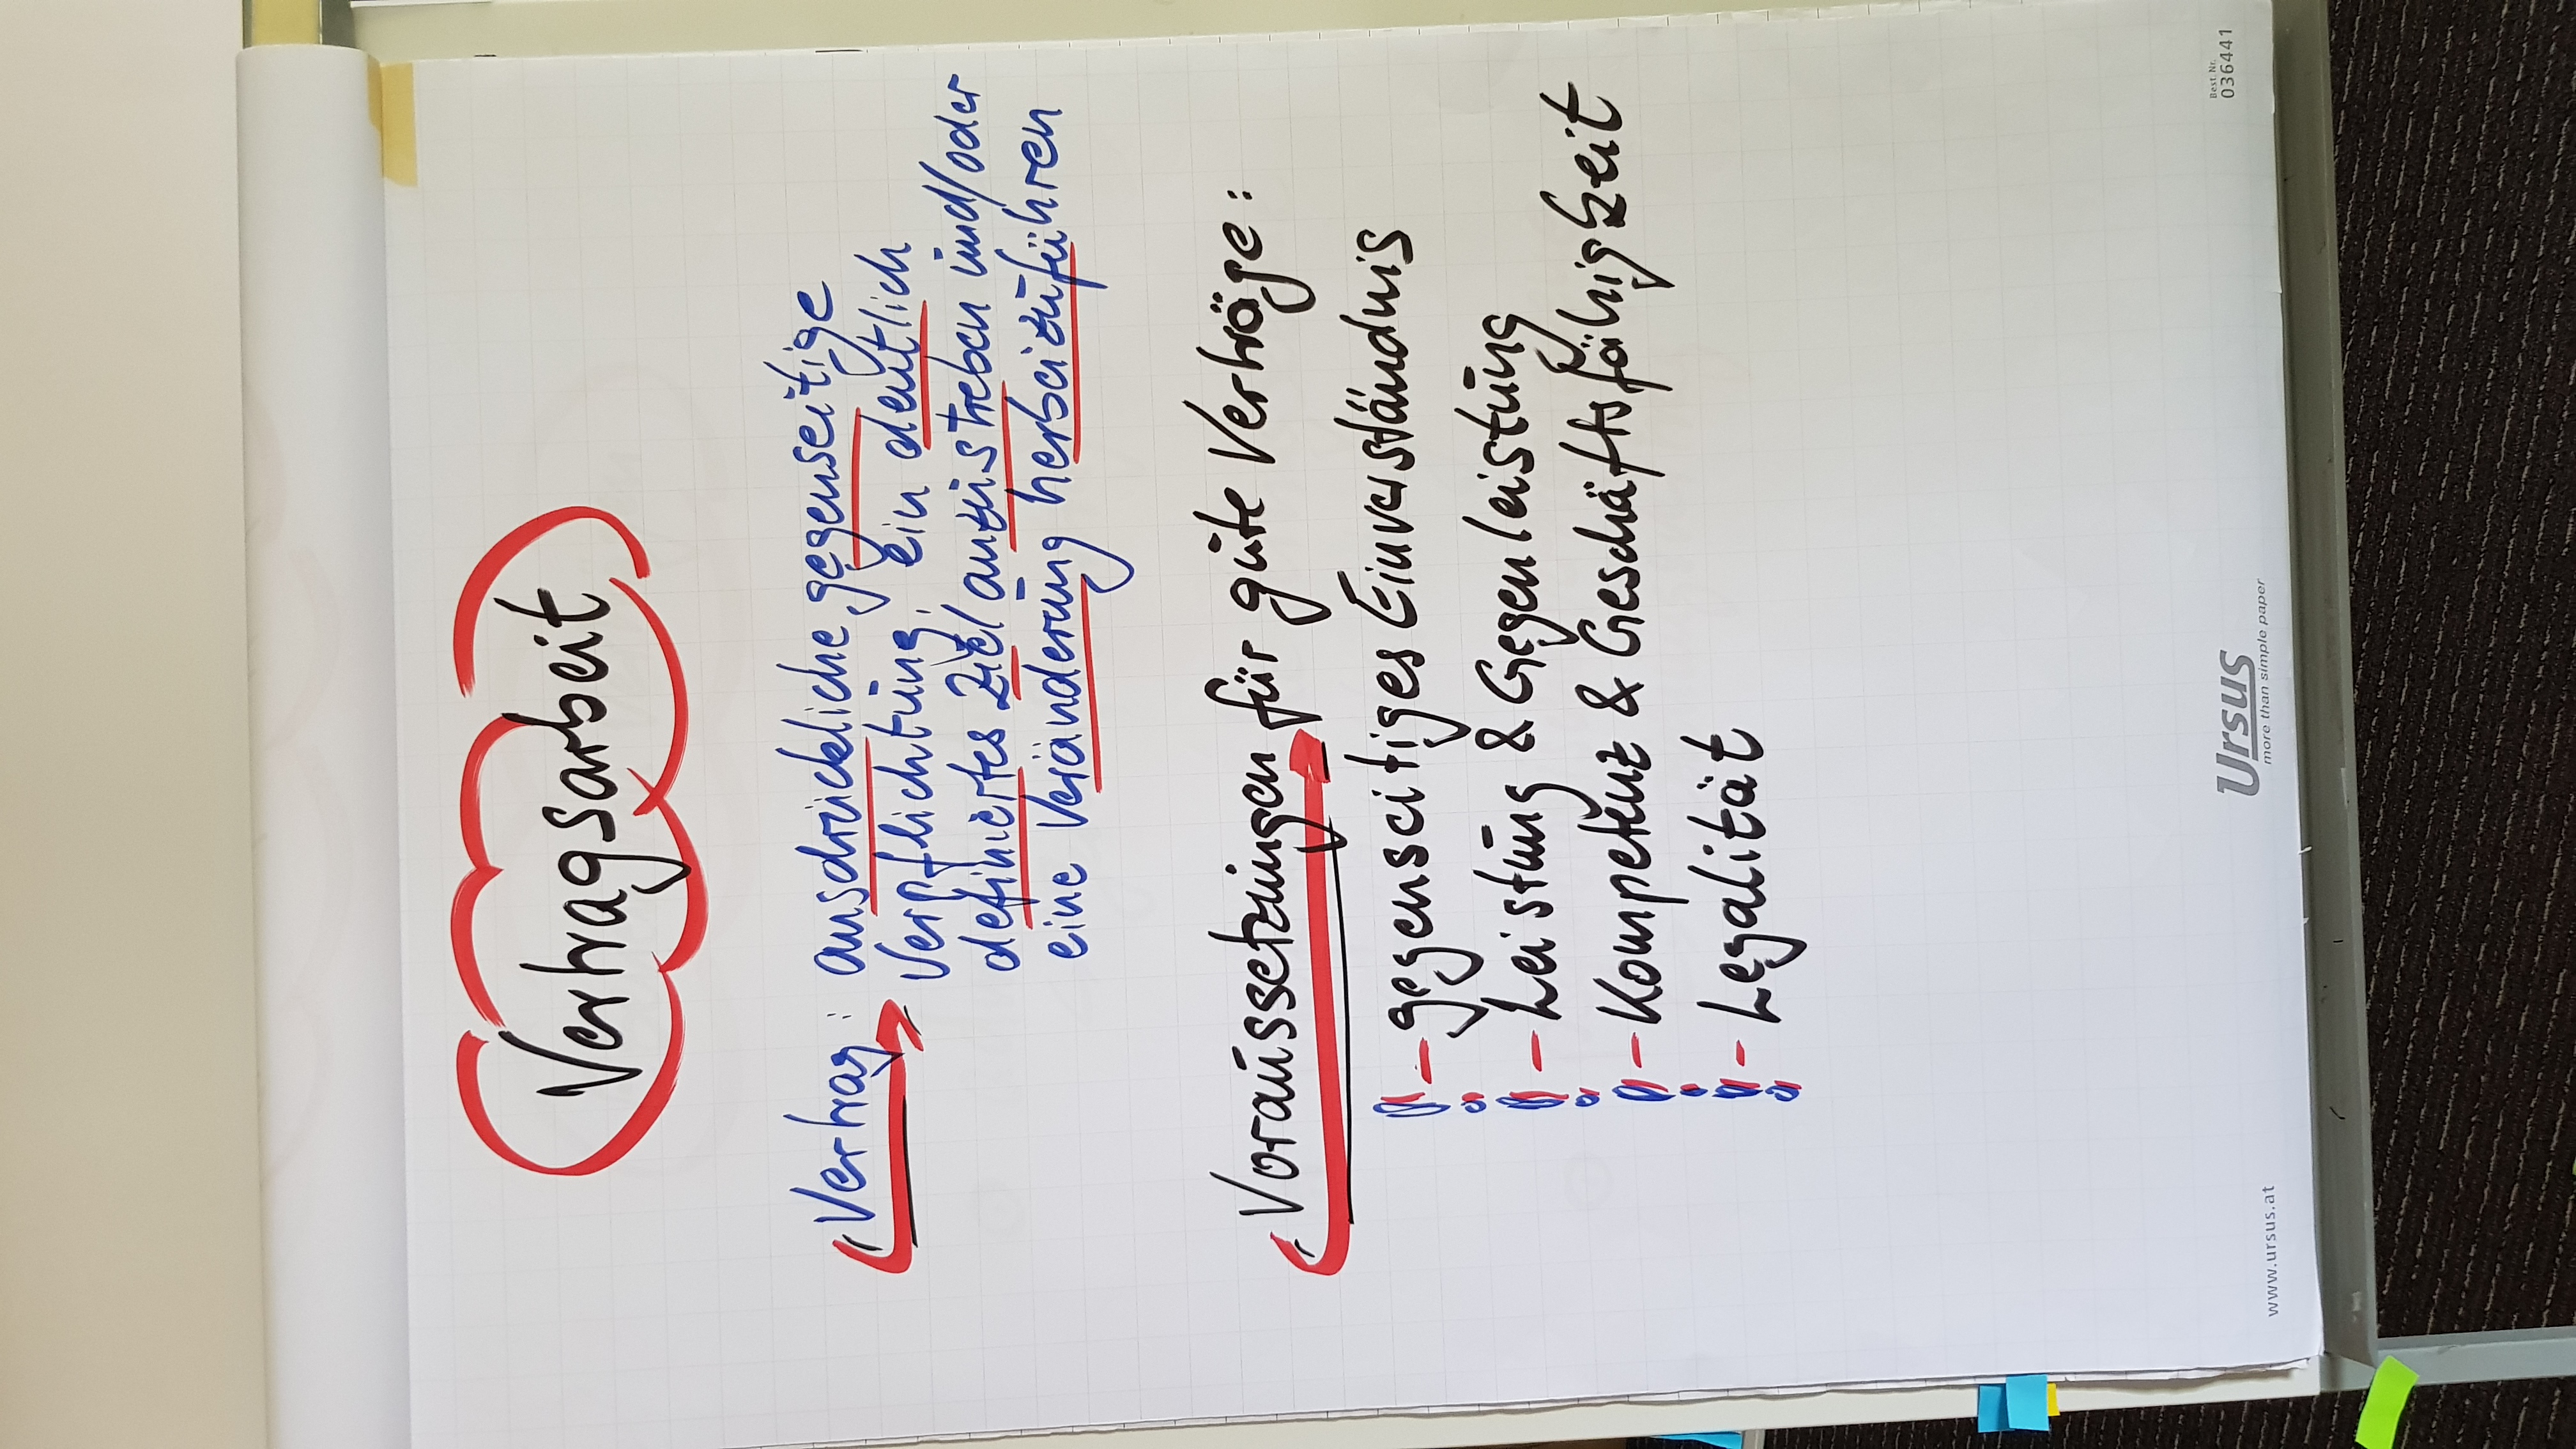 Vertragsarbeit
Vertrag: ausdrückliche gegenseitige
Verpflichtung, ein deutlich
definiertes Ziel anzustreben und/oder
eine Veränderung herbeizuführen
Voraussetzungen für gute Verträge:
- gegenseitiges Einverständnis
- Leistung & Gegenleistung
- Kompetenz & Geschäftsfähigkeit
- Legalität
www.ursus.at
Ursus
more than simple paper
Best. Nr.
036441